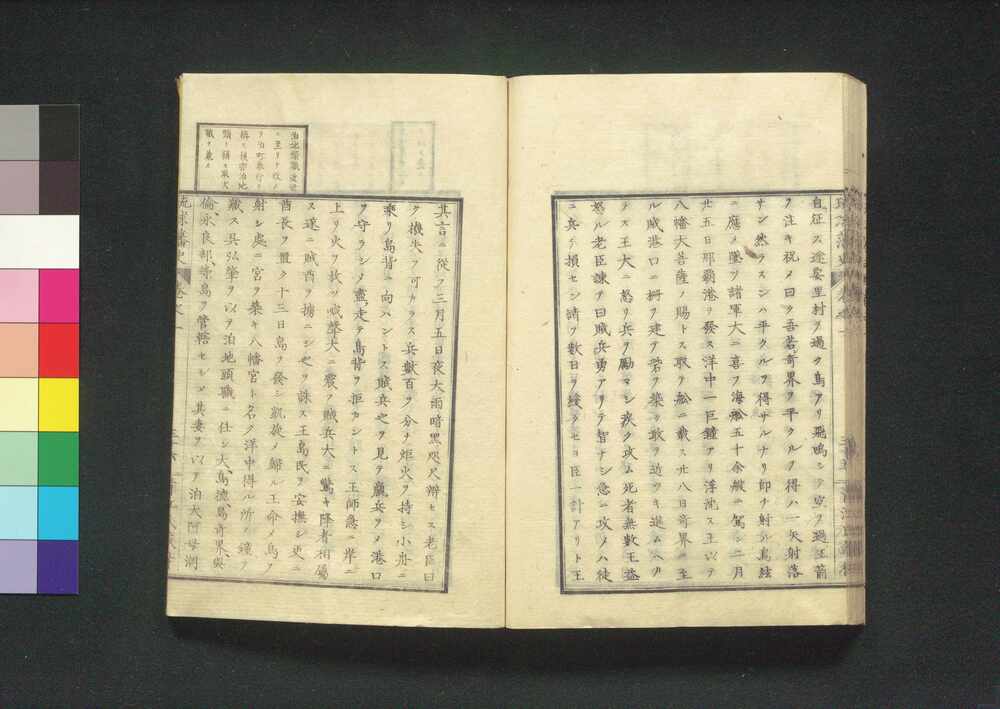 自征ス途安里村ヲ過ク鳥アリ飛鳴シテ空ヲ過王箭
ヲ注キ祝メ曰ク吾若奇界ヲ平クルヲ得ハ一矢射落
サン然ラスンハ平クルヲ得サルナリ即チ射ル鳥弦
ニ應メ墜ツ諸軍大ニ喜フ海船五十余艘ニ駕シ二月
廿五日那覇港ヲ發ス洋中一巨鐘アリ浮沈ス王以テ
八幡大菩薩ノ賜トス取ツ船ニ載ス廿八日奇界ニ至
ル賊港口ニ柵ヲ建テ砦ヲ築キ敢ヲ近ツキ進ムヘカ
ラス王大ニ怒リ兵ヲ勵マシ疾ク攻ム死者無數王益
怒ル老臣諌テ曰賊兵勇アリテ智ナシ急ニ攻メハ徒
ニ兵ヲ損セン請フ數日ヲ緩クセヨ臣一計アリト王
其言ニ從フ三月五日夜大雨暗黒咫尺辨セス老臣曰
ク機失フ可カラス兵數百ヲ分チ炬火ヲ持シ小舟ニ
乘リ島背ニ向ハントス賊兵之ヲ見テ羸兵ヲメ港口
ヲ守ラシメ盡ク走テ島背ヲ拒カントス王師急ニ岸ニ
上リ火ヲ放ツ喊聲大ニ震フ賊兵大ニ驚キ降者相屬
ス遂ニ賊酋ヲ擒ニシ之ヲ誅ス王島民ヲ安撫シ更ニ
酋長ヲ置ク十三日島ヲ發シ凱旋メ歸ル王命メ鳥ヲ
射シ處ニ宮ヲ築キ八幡宮ト名ク洋中得ル所ノ鐘ヲ
藏ス呉弘肇ヲ以テ泊地頭職ニ任シ大島德島奇界與
倫永良部等島ヲ管轄セシメ其妻ヲ以テ泊大阿母潮
琉球藩史